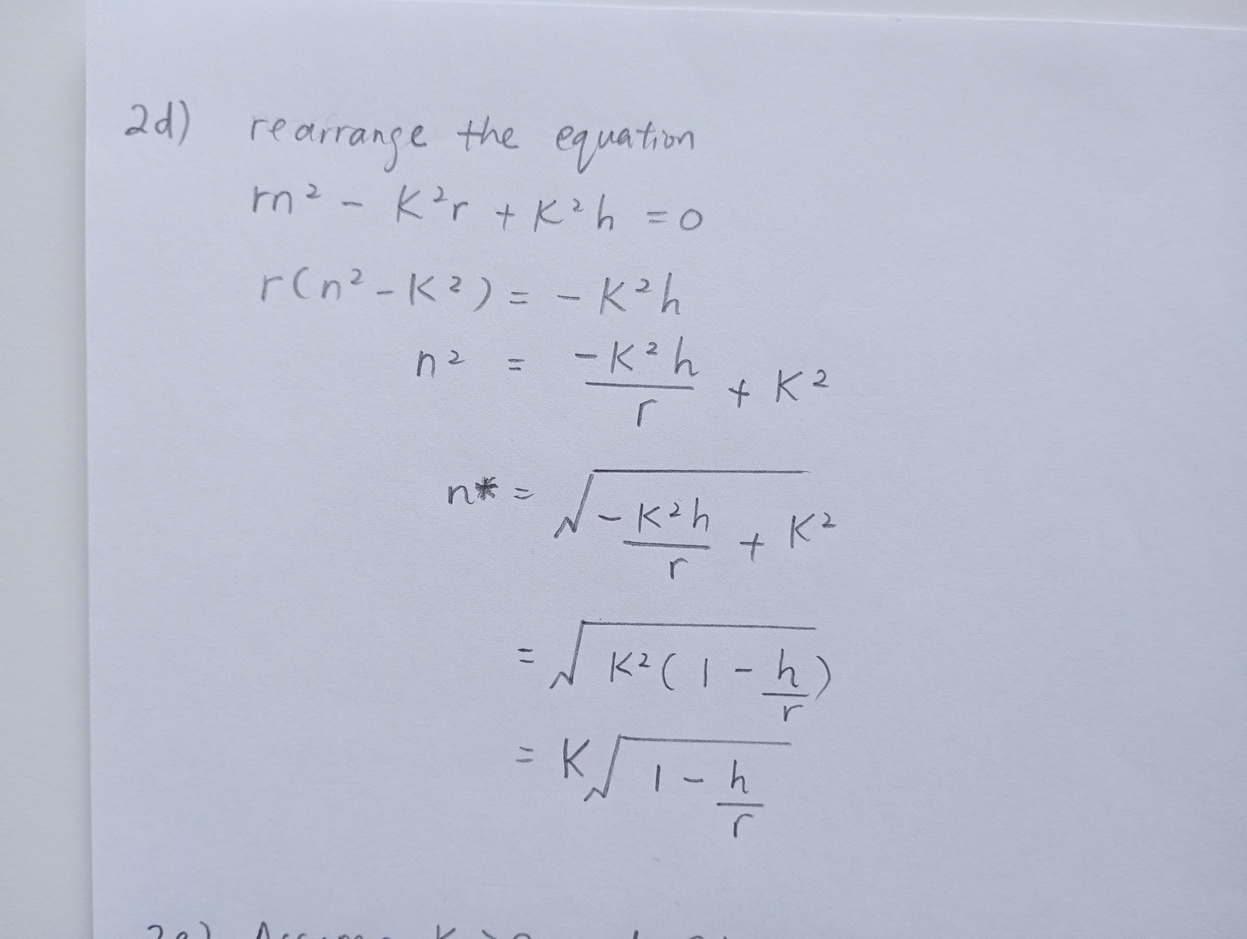 2d) rearrange the equation
rn² - K²r + K²h = 0
r(n² - K²) = - K²h
n² = -K²h/r + K²
n* = √(-K²h/r + K²)
= √(K²(1 - h/r))
= K√(1 - h/r)